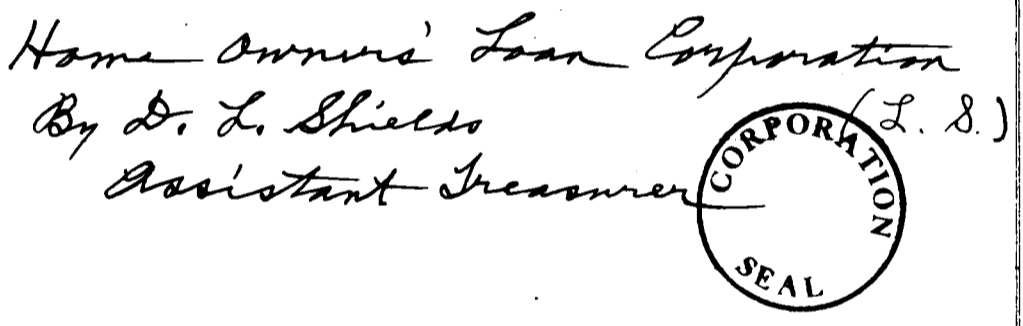 Home Owners' Loan Corporation
By D. L. Shields (L. S.)
Assistant Treasurer
CORPORATION
SEAL